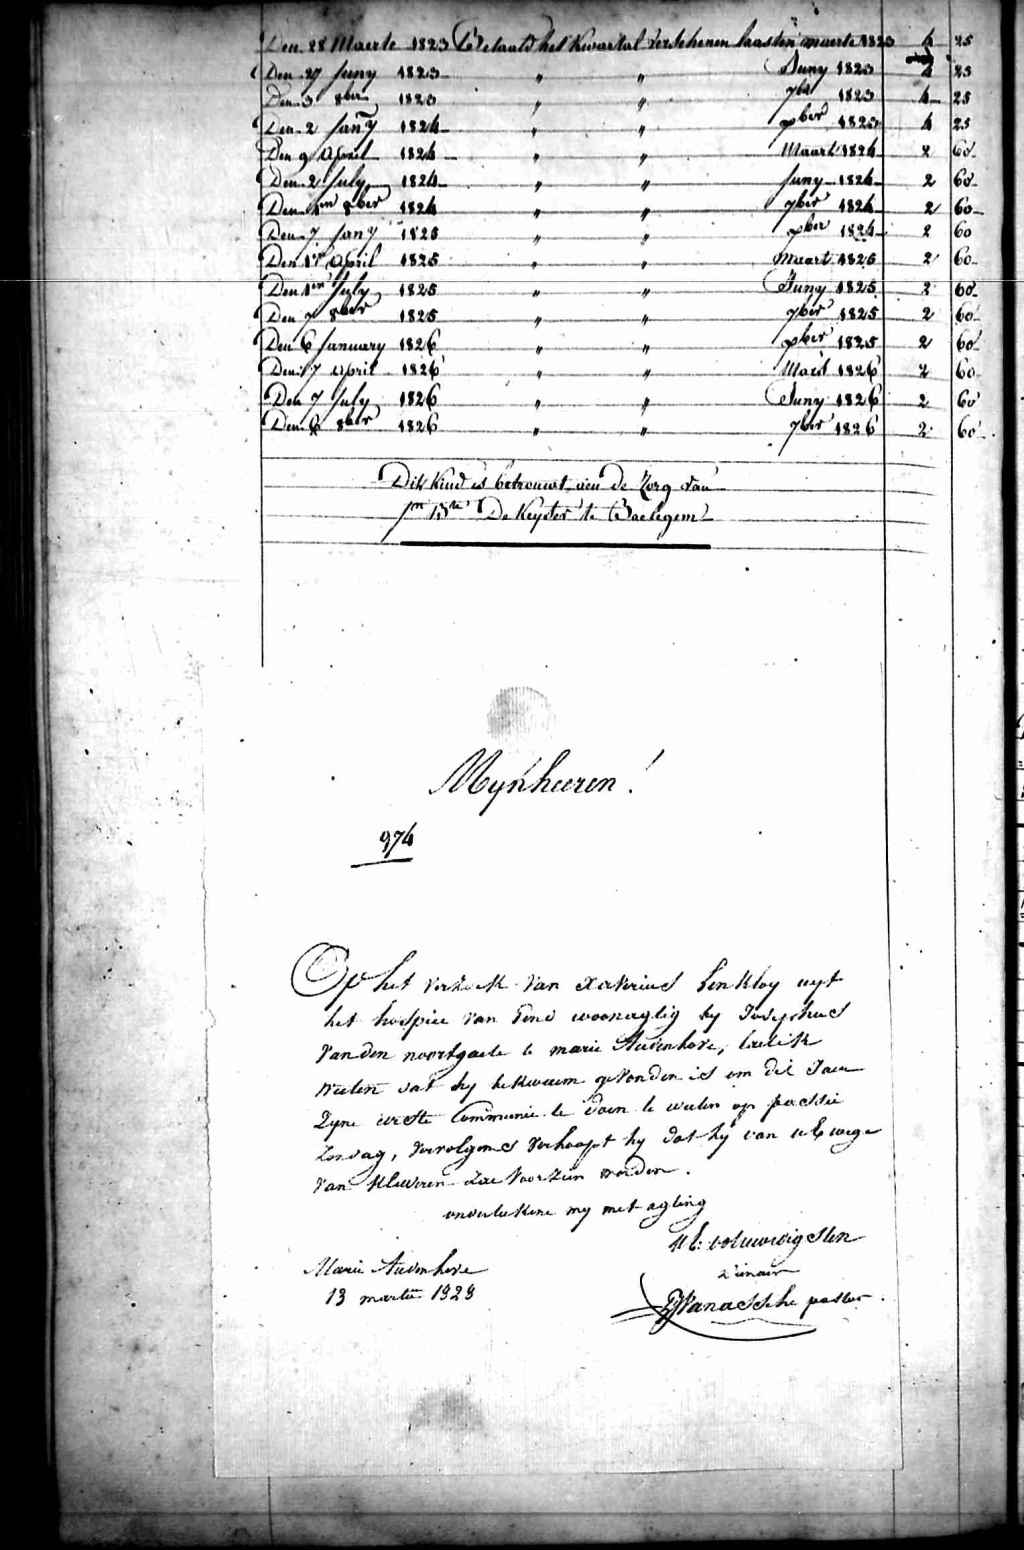 Den 28 Maerte 1823 Betaald het Kwartal verschenen laasten maerte 1823 4 25
Den 27 Juny 1823 " " Juny 1823 4 25
Den 3 8ber 1823 " " 7ber 1823 4 25
Den 2 Jany 1824 " " xber 1823 4 25
Den 9 April 1824 " " Maart 1824 2 60
Den 2 July 1824 " " Juny 1824 2 60
Den 1en 8ber 1824 " " 7ber 1824 2 60
Den 7 Jany 1825 " " xber 1824 2 60
Den 1en April 1825 " " Maart 1825 2 60
Den 1en July 1825 " " Juny 1825 2 60
Den 7 8ber 1825 " " 7ber 1825 2 60
Den 6 January 1826 " " xber 1825 2 60
Den 7 April 1826 " " Maert 1826 2 60
Den 7 July 1826 " " Juny 1826 2 60
Den 6 8ber 1826 " " 7ber 1826 2 60
Dit Kind is betrouwt aen de Zorg van
De Keyser te Baelegem
Mijnheeren!
974
Op het verzoek van Xaverius Linkloy uyt
het hospice van Gend woonagtig by Josephus
Vanden noortgaete te marie Audenhove, laet ik
weeten dat hy bekwaem gevonden is om dit Jaer
Zyne eerste Communie te doen te weeten op passie
Zondag, vervolgens verhoopt hy dat hy van UE wege
van Kleeren zal voorzien worden.
onderteekene my met agting
Marie Audenhove
13 martii 1823
Vanassche pastor.